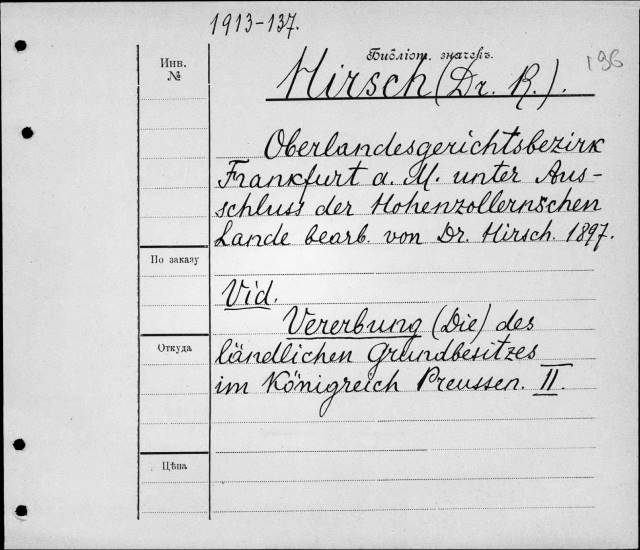 1913-137.
Инв.
№
Библіот. значекъ.
196
Hirsch (Dr. R.).
Oberlandesgerichtsbezirk
Frankfurt a. M. unter Aus-
schluss der Hohenzollernschen
Lande bearb. von Dr. Hirsch. 1897.
По заказу
Vid.
Vererbung (Die) des
Откуда
ländlichen Grundbesitzes
im Königreich Preussen. II.
Цѣна